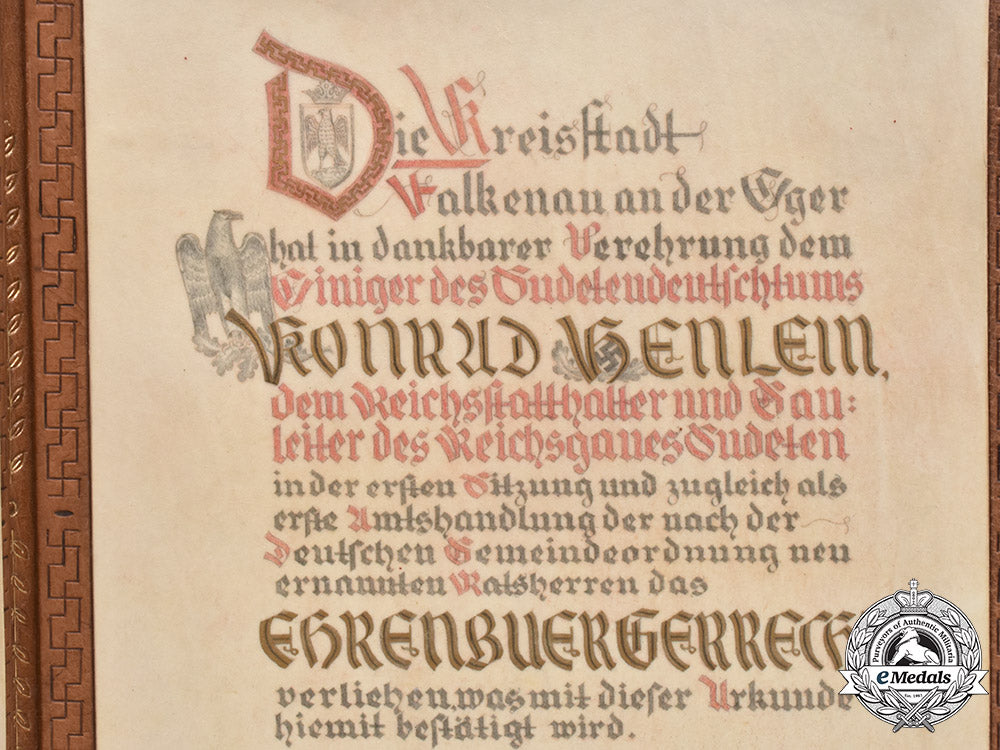 Die Kreisstadt
Falkenau an der Eger
hat in dankbarer Verehrung dem
Einiger des Sudetendeutschtums
KONRAD HENLEIN,
dem Reichsstatthalter und Gau:
leiter des Reichsgaues Sudeten
in der ersten Sitzung und zugleich als
erste Amtshandlung der nach der
Deutschen Gemeindeordnung neu
ernannten Ratsherren das
EHRENBUERGERRECH
verliehen, was mit dieser Urkunde
hiemit bestätigt wird.
Purveyors of Authentic Militaria
eMedals